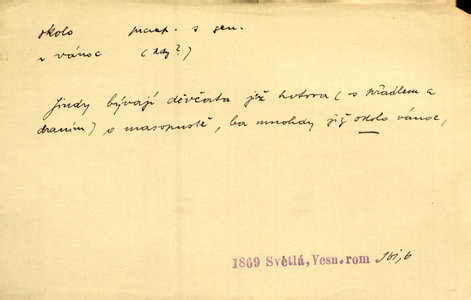 okolo praep. s gen.
v vánoc (kdy?)
Jindy bývají děvčata již hotova (s přádlem a
draním) o masopustě, ba mnohdy již okolo vánoc,
1869 Světlá, Vesn. rom 161,6